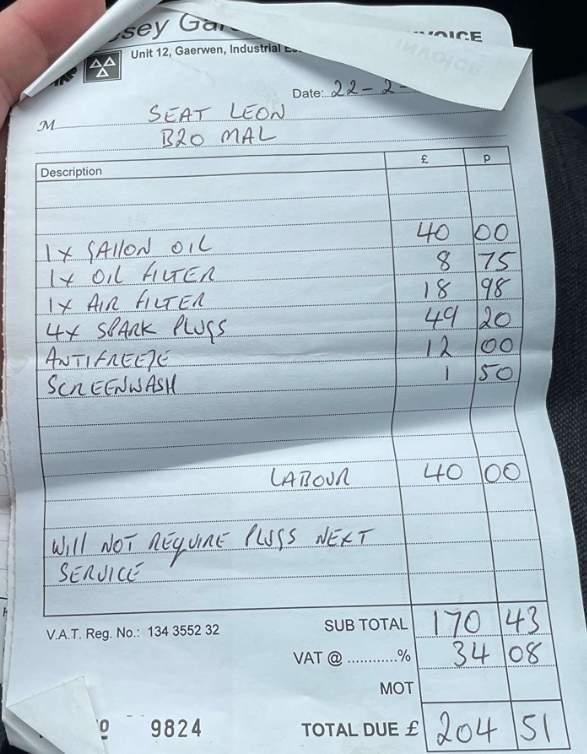 sey Ga
INVOICE
Unit 12, Gaerwen, Industrial
Date: 22-2-
M
SEAT LEON
B20 MAL
Description £ p
1X GALLON OIL 40 00
1X OIL FILTER 8 75
1X AIR FILTER 18 98
4X SPARK PLUGS 49 20
ANTIFREEZE 12 00
SCREENWASH 1 50
LABOUR 40 00
WILL NOT REQUIRE PLUGS NEXT
SERVICE
V.A.T. Reg. No.: 134 3552 32 SUB TOTAL 170 43
VAT @ ............% 34 08
MOT
9824 TOTAL DUE £ 204 51